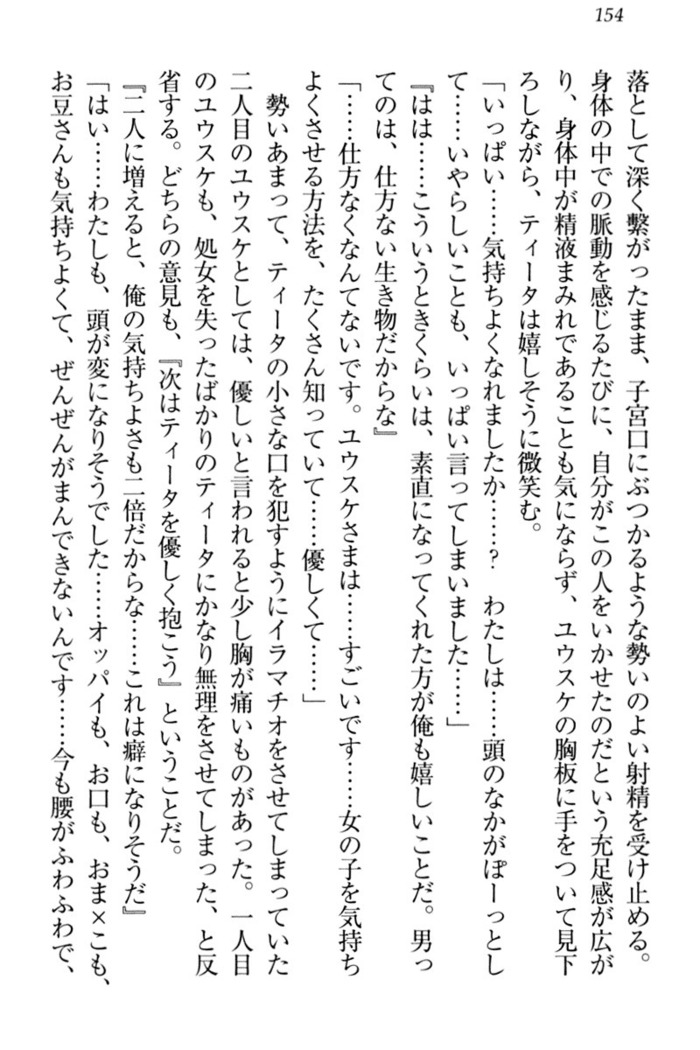 154
落として深く繫がったまま、子宮口にぶつかるような勢いのよい射精を受け止める。
身体の中での脈動を感じるたびに、自分がこの人をいかせたのだという充足感が広が
り、身体中が精液まみれであることも気にならず、ユウスケの胸板に手をついて見下
ろしながら、ティータは嬉しそうに微笑む。
「いっぱい……気持ちよくなれましたか……？　わたしは……頭のなかがぽーっとし
て……いやらしいことも、いっぱい言ってしまいました……」
『はは……こういうときくらいは、素直になってくれた方が俺も嬉しいことだ。男っ
てのは、仕方ない生き物だからな』
「……仕方なくなんてないです。ユウスケさまは……すごいです……女の子を気持ち
よくさせる方法を、たくさん知っていて……優しくて……」
　勢いあまって、ティータの小さな口を犯すようにイラマチオをさせてしまっていた
二人目のユウスケとしては、優しいと言われると少し胸が痛いものがあった。一人目
のユウスケも、処女を失ったばかりのティータにかなり無理をさせてしまった、と反
省する。どちらの意見も、『次はティータを優しく抱こう』ということだ。
『二人に増えると、俺の気持ちよさも二倍だからな……これは癖になりそうだ』
「はい……わたしも、頭が変になりそうでした……オッパイも、お口も、おま×こも、
お豆さんも気持ちよくて、ぜんぜんがまんできないんです……今も腰がふわふわで、